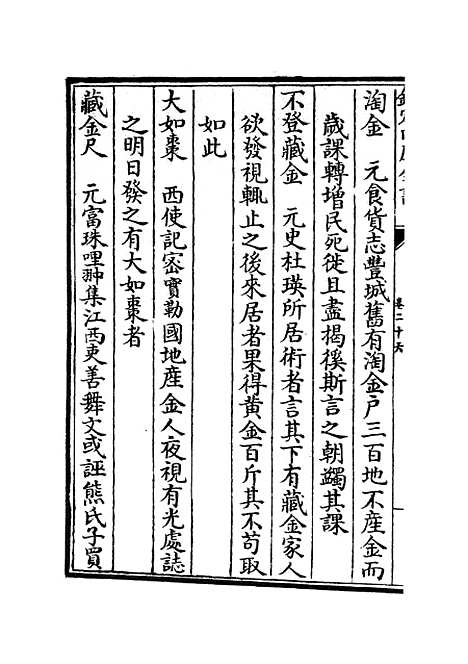 卷二十六
淘金　元食貨志豐城舊有淘金户三百地不産金而
歲課轉增民死徙且盡揭徯斯言之朝蠲其課
不登藏金　元史杜瑛所居術者言其下有藏金家人
欲發視輒止之後來居者果得黄金百斤其不苟取
如此
大如棗　西使記宻實勒國地産金人夜視有光處誌
之明日發之有大如棗者
藏金尺　元富珠哩翀集江西吏善舞文或誣熊氏子買